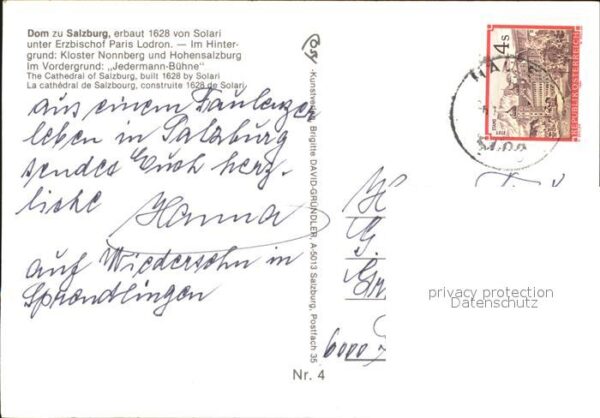 Dom zu Salzburg, erbaut 1628 von Solari
unter Erzbischof Paris Lodron. — Im Hinter-
grund: Kloster Nonnberg und Hohensalzburg
Im Vordergrund: „Jedermann-Bühne"
The Cathedral of Salzburg, built 1628 by Solari
La cathédral de Salzbourg, construite 1628 de Solari
aus einem Faulenzer
leben in Salzburg
sendes Euch herz-
liche
Hanna
auf Wiedersehn in
Sprendlingen
-Kunstverlag Brigitte DAVID-GRÜNDLER, A-5013 Salzburg, Postfach 35
Nr. 4
4 S
REPUBLIK ÖSTERREICH
H
G.
Gr
6000
privacy protection
Datenschutz